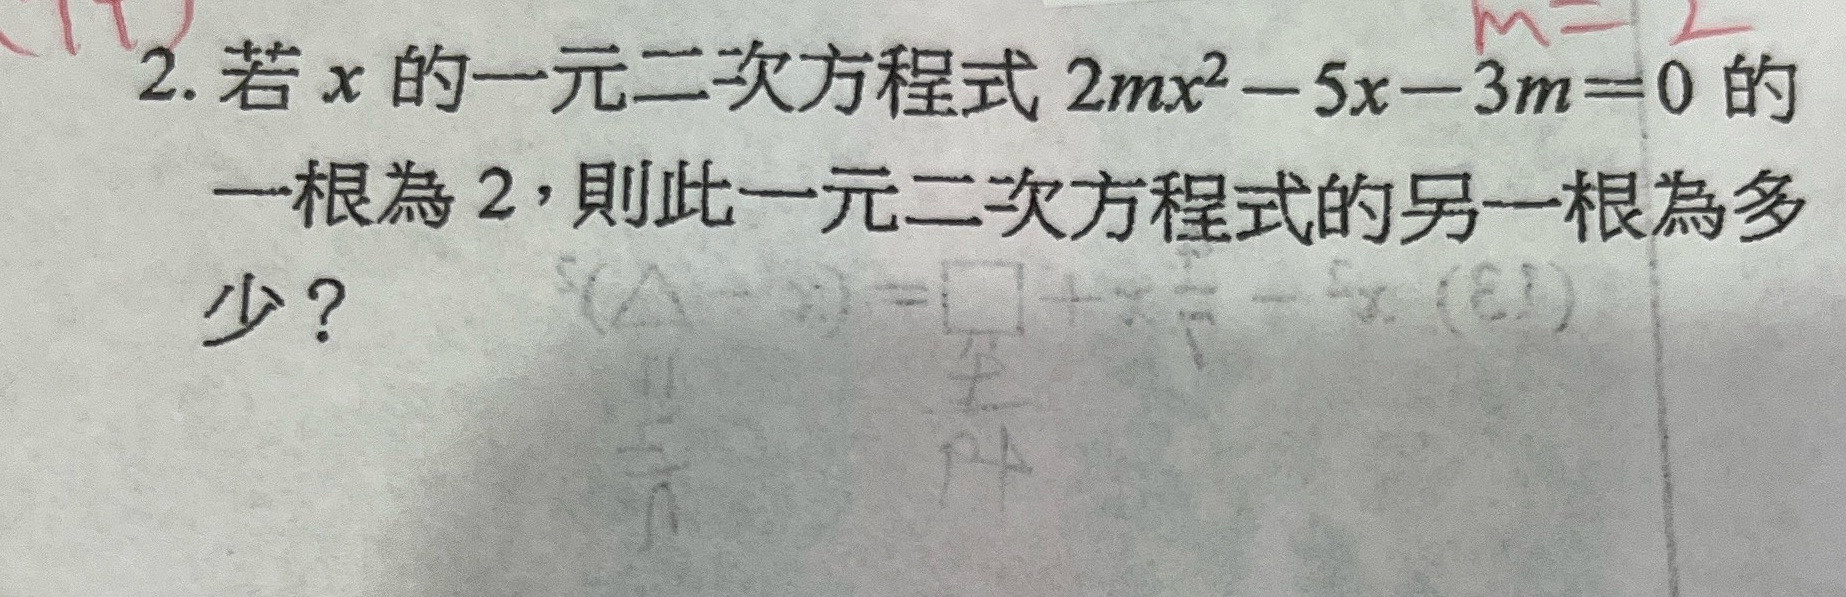 m=2
2. 若 x 的一元二次方程式 2mx²－5x－3m＝0 的
一根為 2，則此一元二次方程式的另一根為多
少？